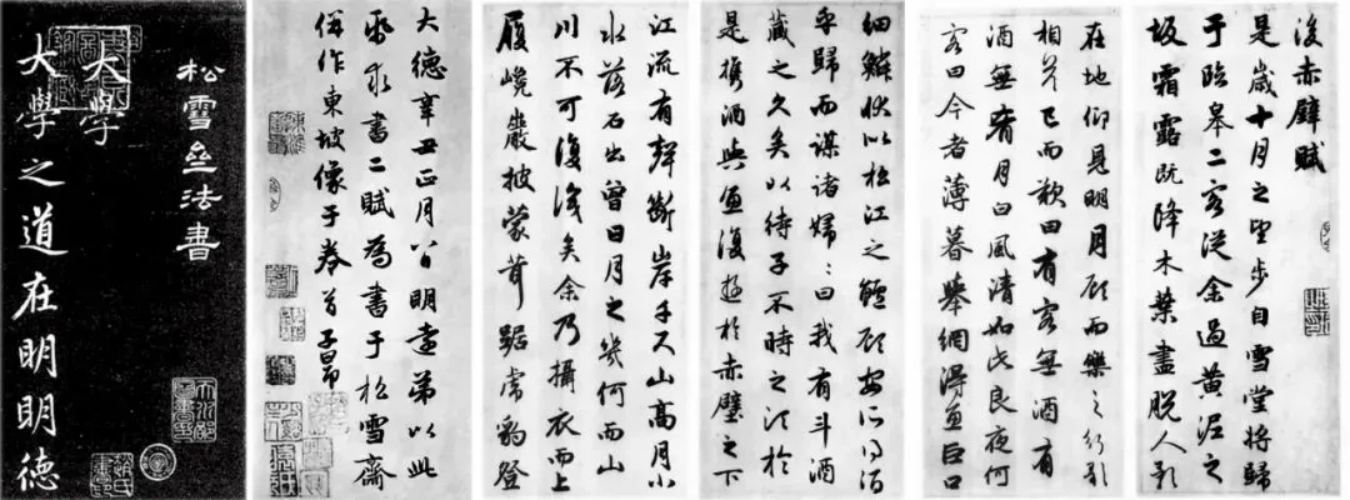 後赤壁賦
是歲十月之望步自雪堂將歸
于臨皋二客從余過黃泥之
坂霜露既降木葉盡脫人影
在地仰見明月顧而樂之行歌
相答已而歎曰有客無酒有
酒無肴月白風清如此良夜何
客曰今者薄暮舉網得魚巨口
細鱗狀似松江之鱸顧安所得酒
乎歸而謀諸婦〻曰我有斗酒
藏之久矣以待子不時之須於
是攜酒與魚復遊於赤壁之下
江流有聲斷岸千尺山高月小
水落石出曾日月之幾何而山
川不可復識矣余乃攝衣而上
履巉巖披蒙茸踞虎豹登
大德辛丑正月八日明遠弟以此
紙求書二賦為書于松雪齋
併作東坡像于卷首子昂
松雪齋法書
大學
大學之道在明明德